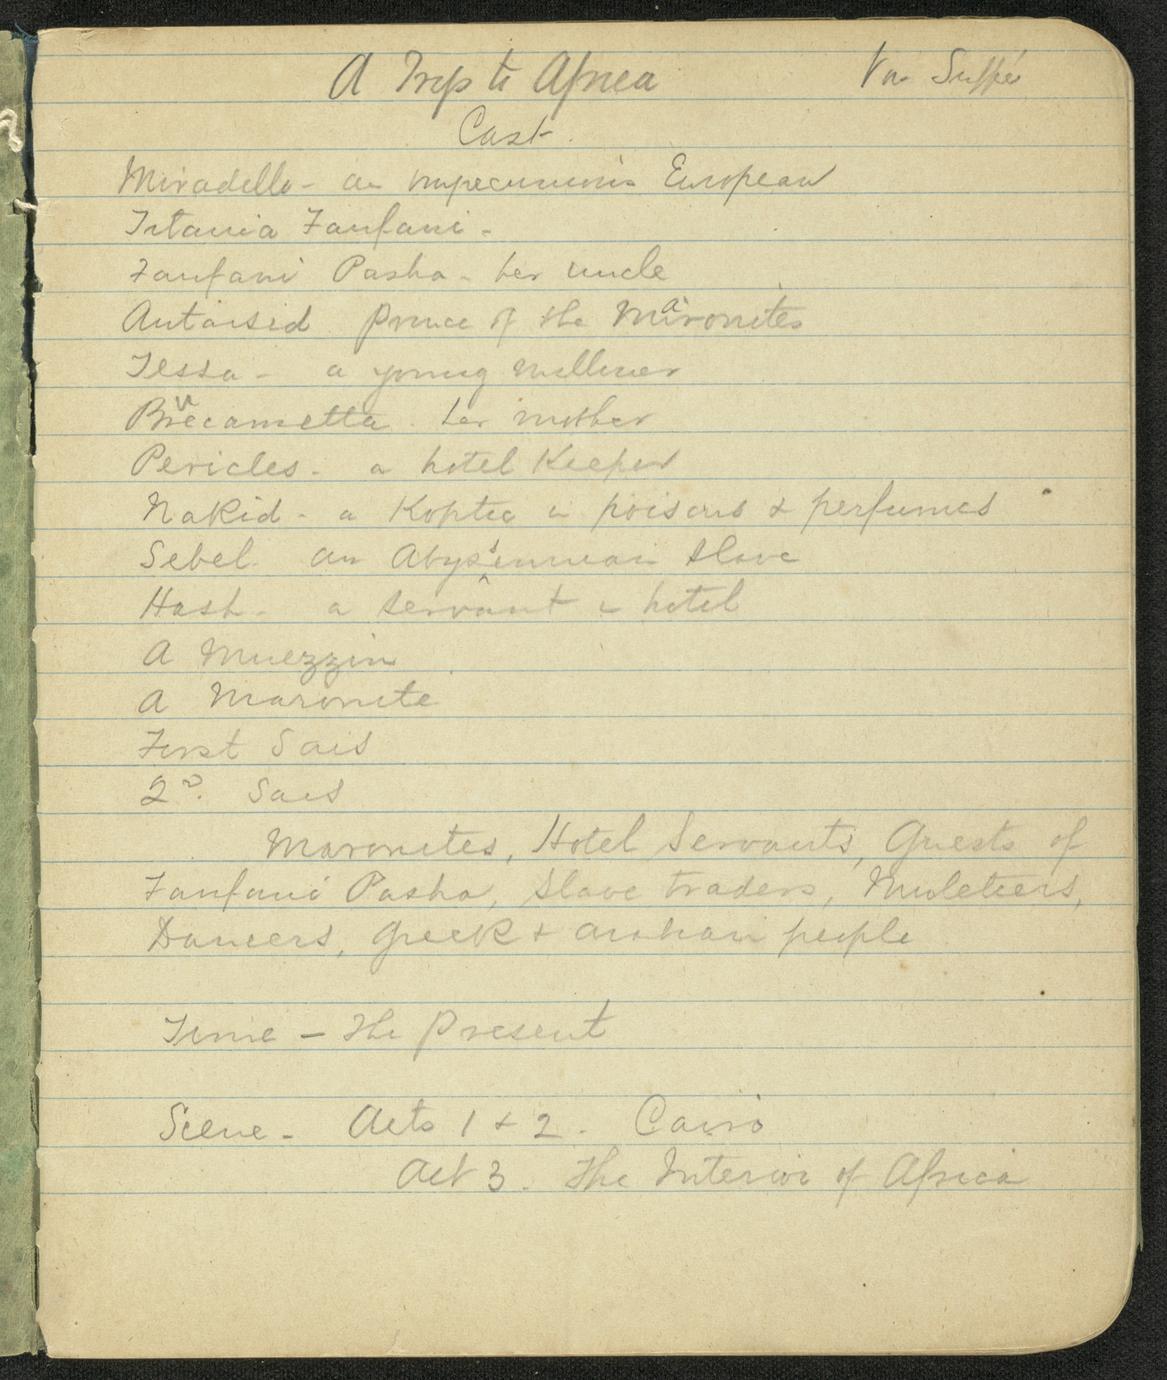 A Trip to Africa Von Suppé
Cast.
Miradello - an impecunious European
Titania Fanfani -
Fanfani Pasha - her uncle
Antarsid prince of the Maronites
Tessa - a young milliner
Buccametta . her mother
Pericles - a hotel Keeper
Nakid - a Koptic in poisons & perfumes
Sebel - an Abyssennian slave
Hosh - a servant in hotel
A Muezzin
A Maronite
First Sais
2D. Sais
Maronites, Hotel Servants, Guests of
Fanfani Pasha, slave traders, Muleteers,
Dancers, Greek & arabian people
Time - The Present
Scene - Acts 1 & 2. Cairo
Act 3. The Interior of Africa